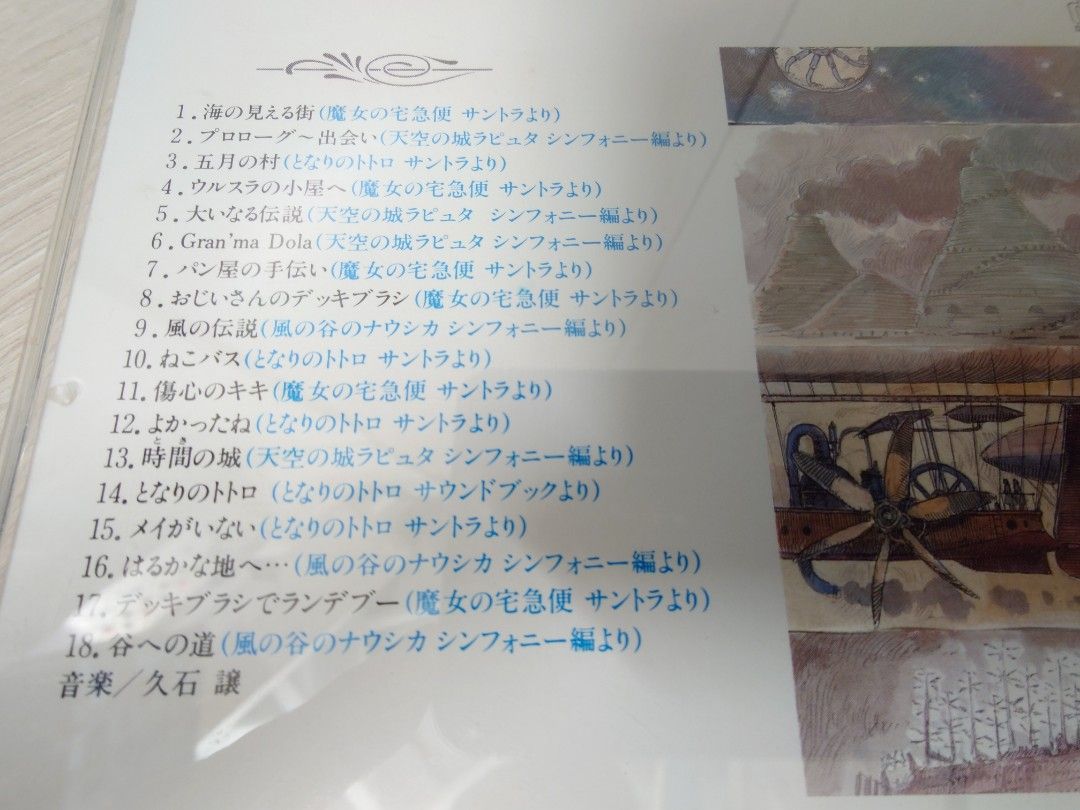 1.海の見える街(魔女の宅急便 サントラより)
2.プロローグ～出会い(天空の城ラピュタ シンフォニー編より)
3.五月の村(となりのトトロ サントラより)
4.ウルスラの小屋へ(魔女の宅急便 サントラより)
5.大いなる伝説(天空の城ラピュタ シンフォニー編より)
6.Gran'ma Dola(天空の城ラピュタ シンフォニー編より)
7.パン屋の手伝い(魔女の宅急便 サントラより)
8.おじいさんのデッキブラシ(魔女の宅急便 サントラより)
9.風の伝説(風の谷のナウシカ シンフォニー編より)
10.ねこバス(となりのトトロ サントラより)
11.傷心のキキ(魔女の宅急便 サントラより)
12.よかったね(となりのトトロ サントラより)
とき
13.時間の城(天空の城ラピュタ シンフォニー編より)
14.となりのトトロ(となりのトトロ サウンドブックより)
15.メイがいない(となりのトトロ サントラより)
16.はるかな地へ…(風の谷のナウシカ シンフォニー編より)
17.デッキブラシでランデブー(魔女の宅急便 サントラより)
18.谷への道(風の谷のナウシカ シンフォニー編より)
音楽／久石 譲